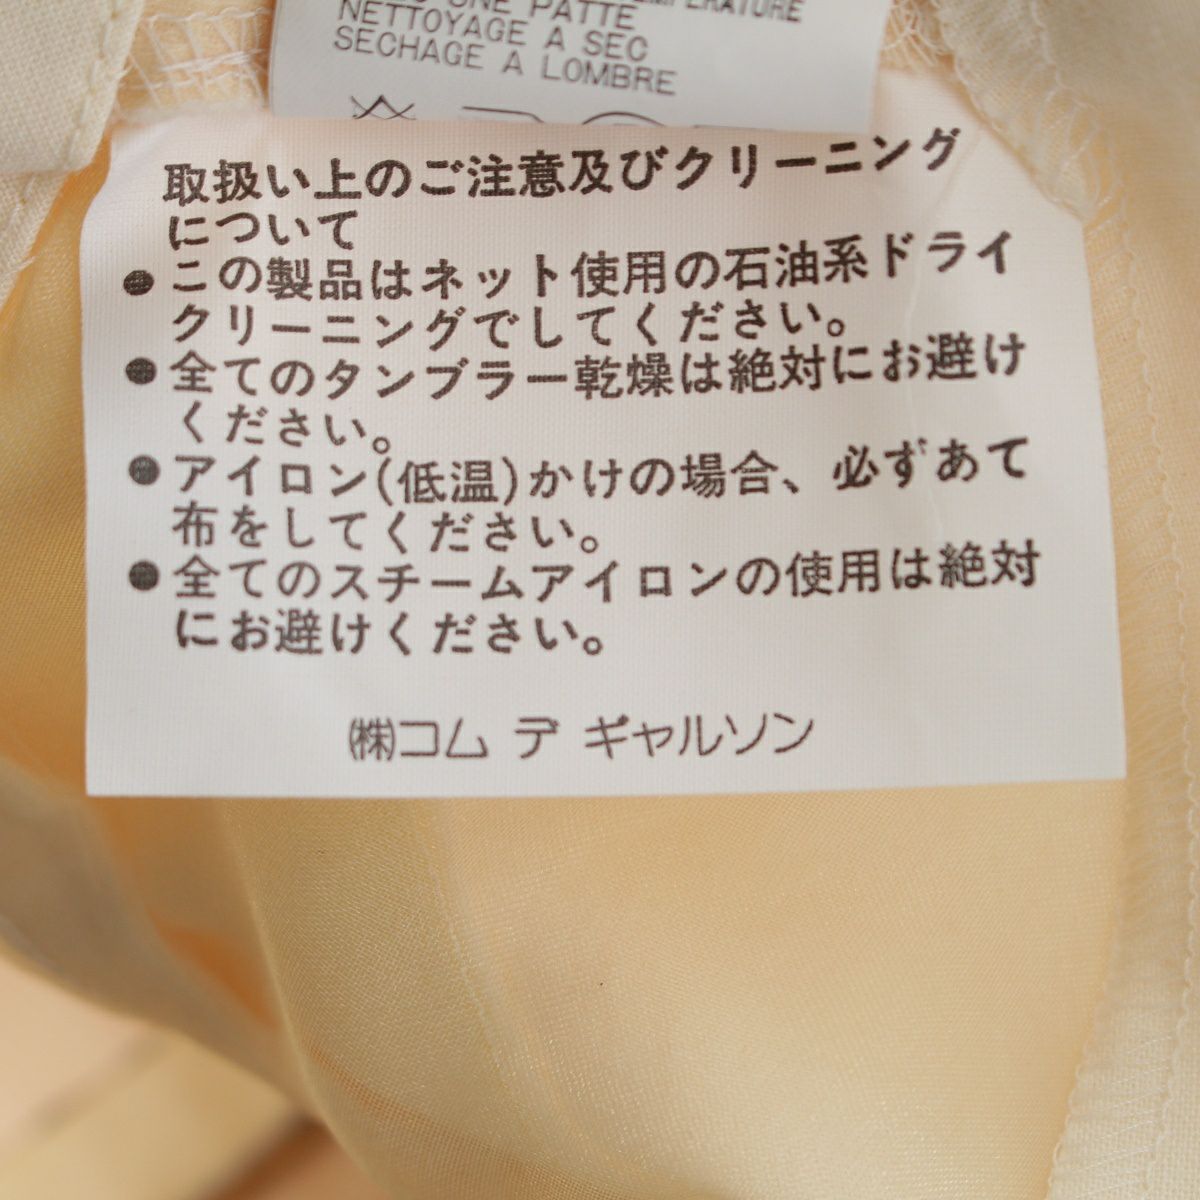 UNE PATTE
NETTOYAGE A SEC
SECHAGE A LOMBRE
取扱い上のご注意及びクリーニング
について
●この製品はネット使用の石油系ドライ
クリーニングでしてください。
●全てのタンブラー乾燥は絶対にお避け
ください。
●アイロン(低温)かけの場合、必ずあて
布をしてください。
●全てのスチームアイロンの使用は絶対
にお避けください。
㈱コム デ ギャルソン